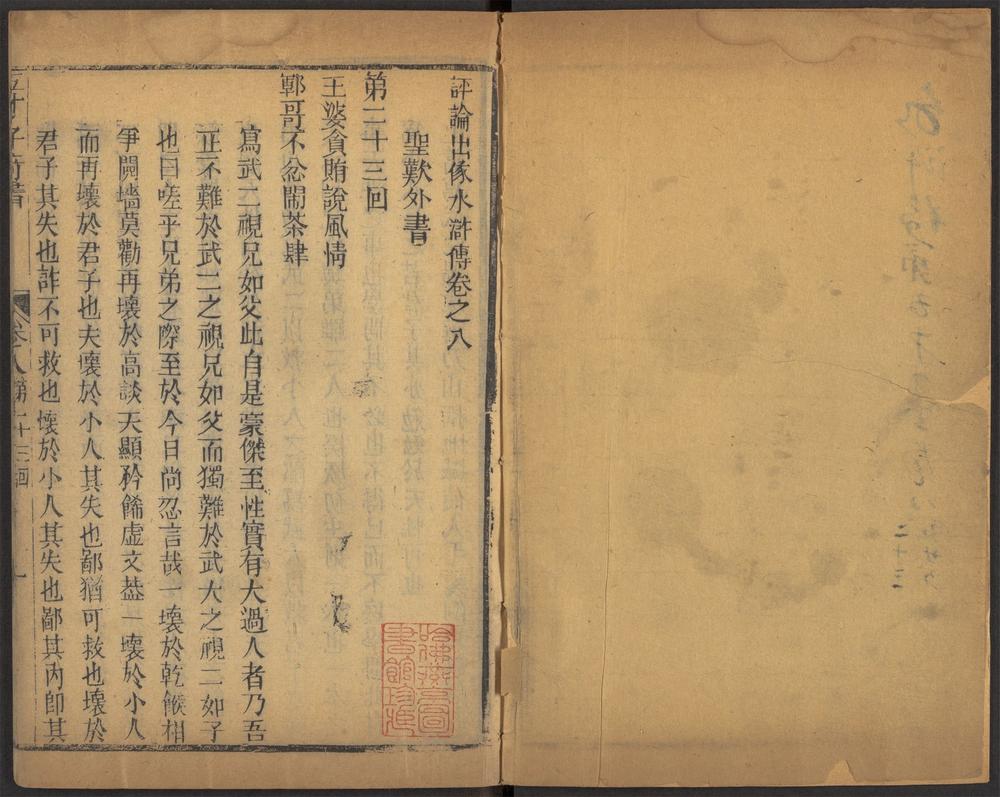 評論出像水滸傳卷之八
聖歎外書
第二十三回
王婆貪賄說風情
鄆哥不忿鬧茶肆
寫武二視兄如父此自是豪傑至性實有大過人者乃吾
正不難於武二之視兄如父而獨難於武大之視二如子
也曰嗟乎兄弟之際至於今日尚忍言哉一壞於乾餱相
爭鬩墻莫勸再壞於高談天顯矜餙虛文葢一壞於小人
而再壞於君子也夫壞於小人其失也鄙猶可救也壞於
君子其失也詐不可救也壞於小人其失也鄙其內卽其
五才子奇書
卷八
第二十三回
一
哈佛燕京圖書館珍藏
二十三